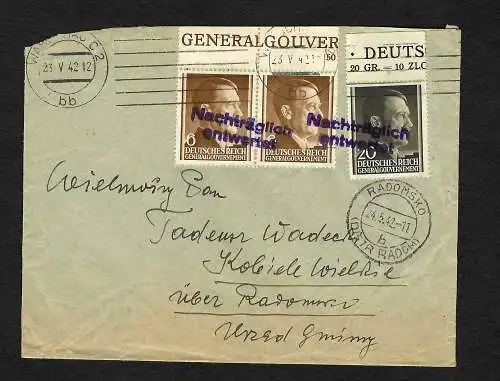 GENERALGOUVER
50
· DEUTS
20 GR. — 10 ZLO
C 2
23 V 42 12
bb
23 V 42 1
6
DEUTSCHES REICH
GENERALGOUVERNEMENT
6
DEUTSCHES REICH
GENERALGOUVERNEMENT
20
DEUTSCHES REICH
GENERALGOUVERNEMENT
Nachträglich
entwertet
Nachträglich
entwertet
RADOMSKO
24.5.42.-11
b
(DISTR RADOM)
Wielmożny Pan
Tadeusz Wadecki
Kobiele Wielkie
über Radomsko
Urząd Gminy